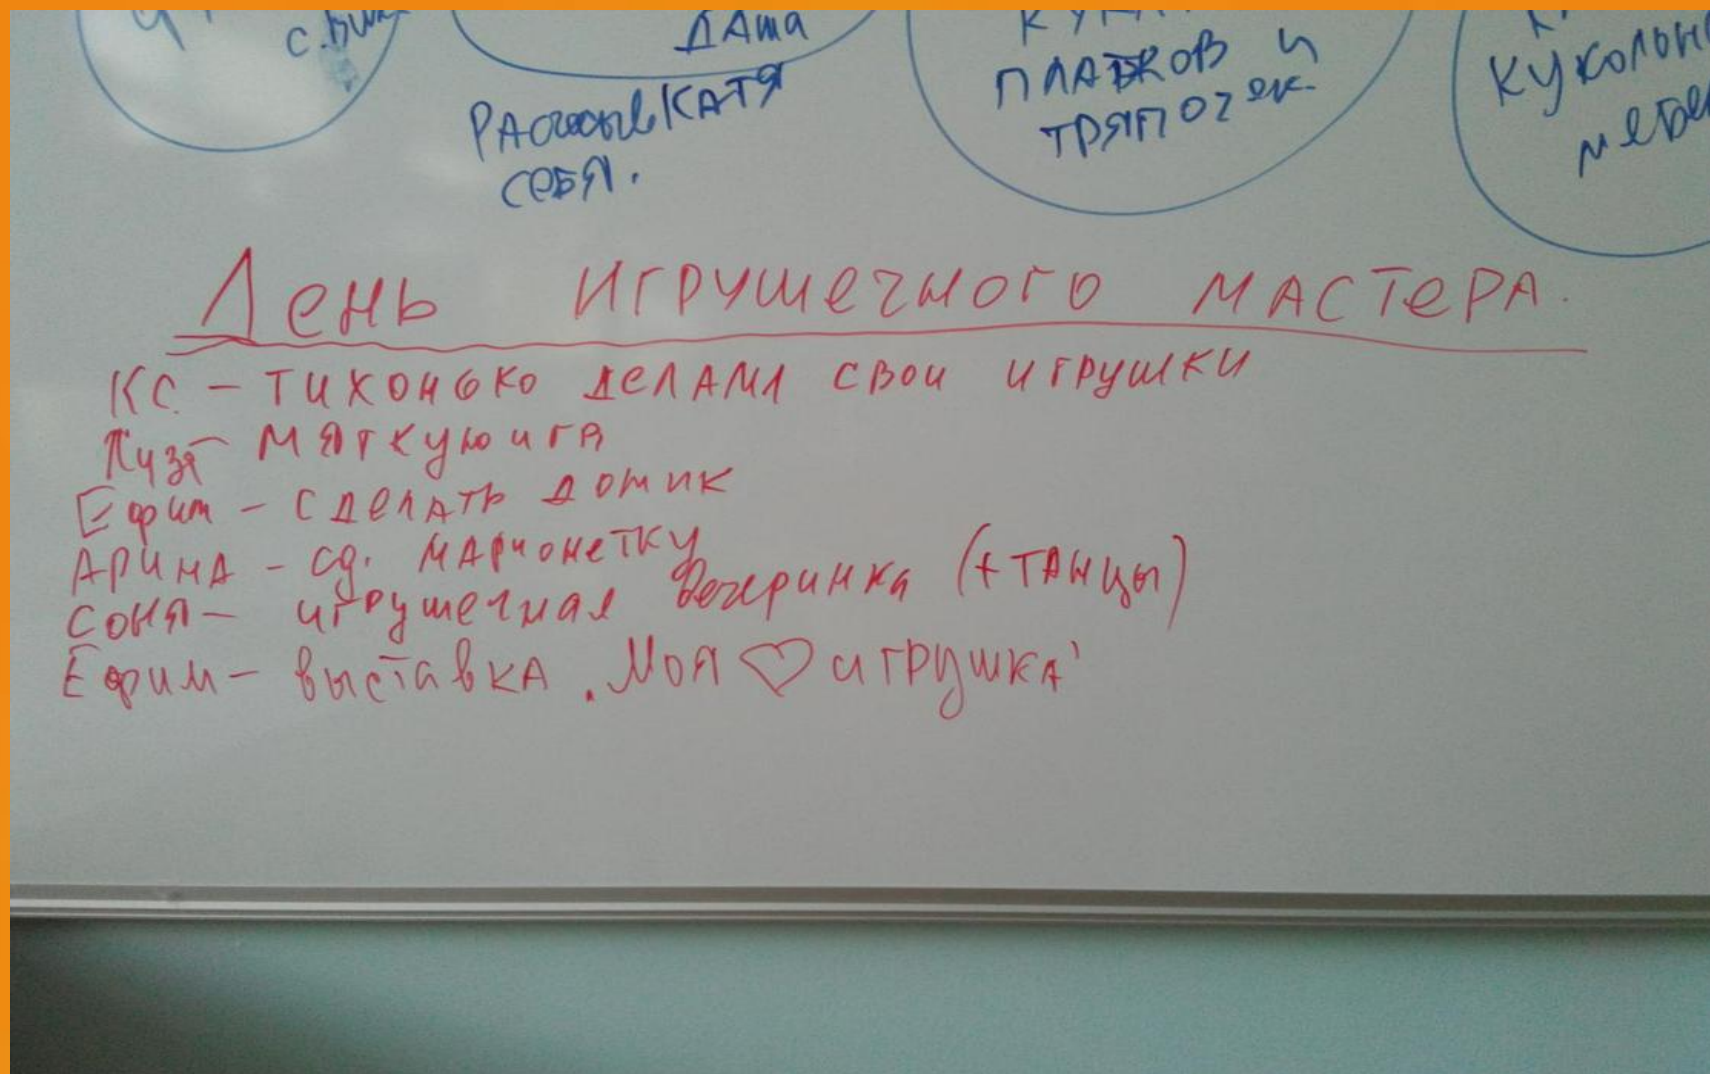 ДАША
КАТЯ
СЕБЯ.
ПЛАТКОВ И
ТРЯПОЧЕК.
День игрушечного мастера.
КС – тихонько делаем свои игрушки
– мягкую
Ефим – сделать домик
Арина – сд. марионетку
Соня – игрушечная вечеринка (+ танцы)
Ефим – выставка „Моя ♡ игрушка"